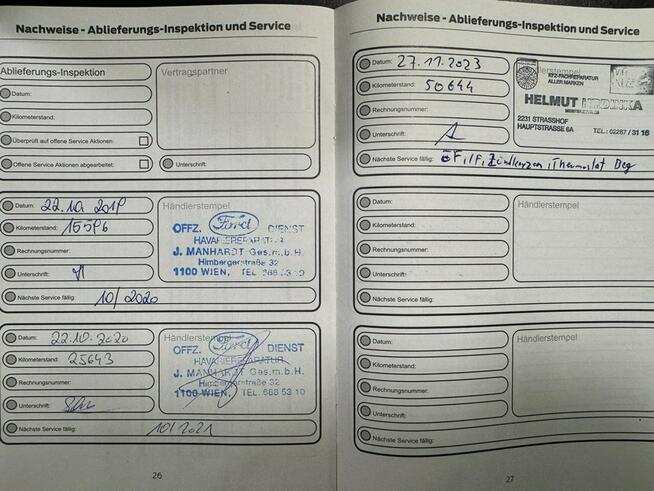 Nachweise - Ablieferungs-Inspektion und Service
Ablieferungs-Inspektion
Vertragspartner
Datum:
Kilometerstand:
Überprüft auf offene Service Aktionen:
Offene Service Aktionen abgearbeitet:
Unterschrift:
Datum: 22.10.2019
Händlerstempel
Kilometerstand: 15596
Rechnungsnummer:
Unterschrift:
Nächste Service fällig: 10/2020
OFFZ. Ford DIENST
HAVARIEREPARATUR
J. MANHARDT Ges.m.b.H.
Himbergerstraße 32
1100 WIEN, TEL 688 53 10
Datum: 22.10.2020
Händlerstempel
Kilometerstand: 25643
Rechnungsnummer:
Unterschrift:
Nächste Service fällig: 10/2021
OFFZ. Ford DIENST
HAVARIEREPARATUR
J. MANHARDT Ges.m.b.H.
Himbergerstraße 32
1100 WIEN, TEL. 688 53 10
26
Nachweise - Ablieferungs-Inspektion und Service
Datum: 27.11.2023
Kilometerstand: 50644
Rechnungsnummer:
Unterschrift:
Nächste Service fällig: ÖF, IF, Zündkerzen, Thermostat Beg
KFZ-FACHREPARATUR
ALLER MARKEN
HELMUT HRDINKA
2231 STRASSHOF
HAUPTSTRASSE 6A
TEL.: 02287 / 31 16
Datum:
Händlerstempel
Kilometerstand:
Rechnungsnummer:
Unterschrift:
Nächste Service fällig:
Datum:
Händlerstempel
Kilometerstand:
Rechnungsnummer:
Unterschrift:
Nächste Service fällig:
27